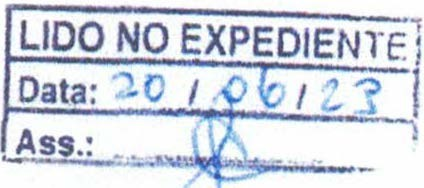 LIDO NO EXPEDIENTE
Data: 20 / 06 / 23
Ass.: